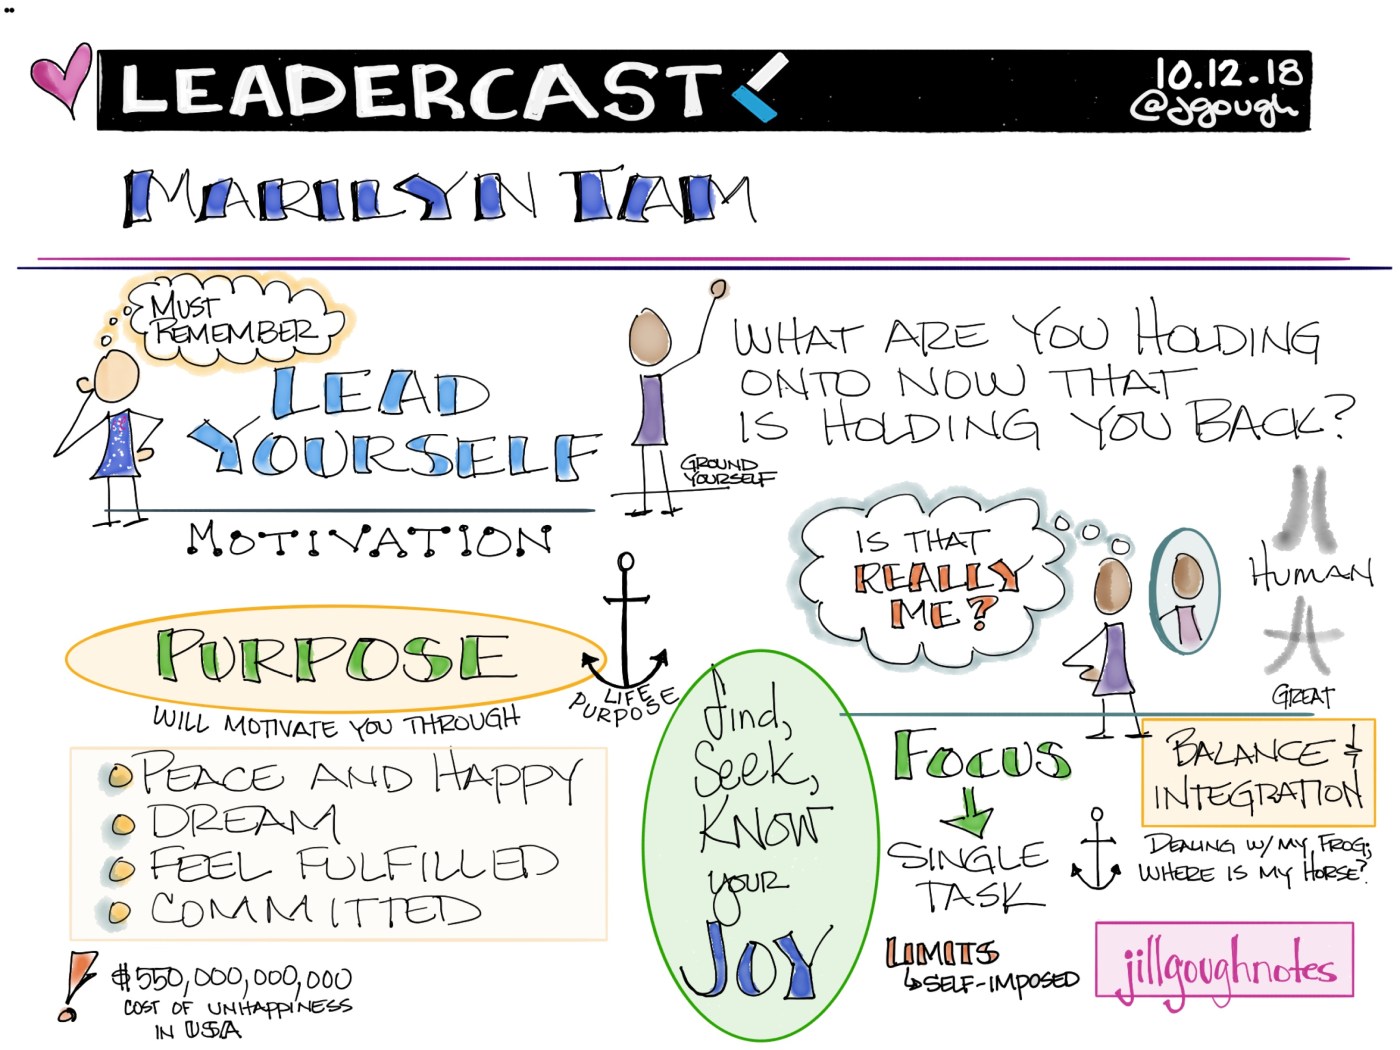 LEADERCAST
10.12.18
@jgough
MARILYN TAM
MUST
REMEMBER
LEAD
YOURSELF
WHAT ARE YOU HOLDING
ONTO NOW THAT
IS HOLDING YOU BACK?
GROUND
YOURSELF
MOTIVATION
IS THAT
REALLY
ME?
HUMAN
GREAT
PURPOSE
LIFE
PURPOSE
WILL MOTIVATE YOU THROUGH
PEACE AND HAPPY
DREAM
FEEL FULFILLED
COMMITTED
$550,000,000,000
COST OF UNHAPPINESS
IN USA
find,
Seek,
KNOW
your
JOY
FOCUS
SINGLE
TASK
LIMITS
SELF-IMPOSED
BALANCE &
INTEGRATION
DEALING W/ MY FROG;
WHERE IS MY HORSE?
jillgoughnotes